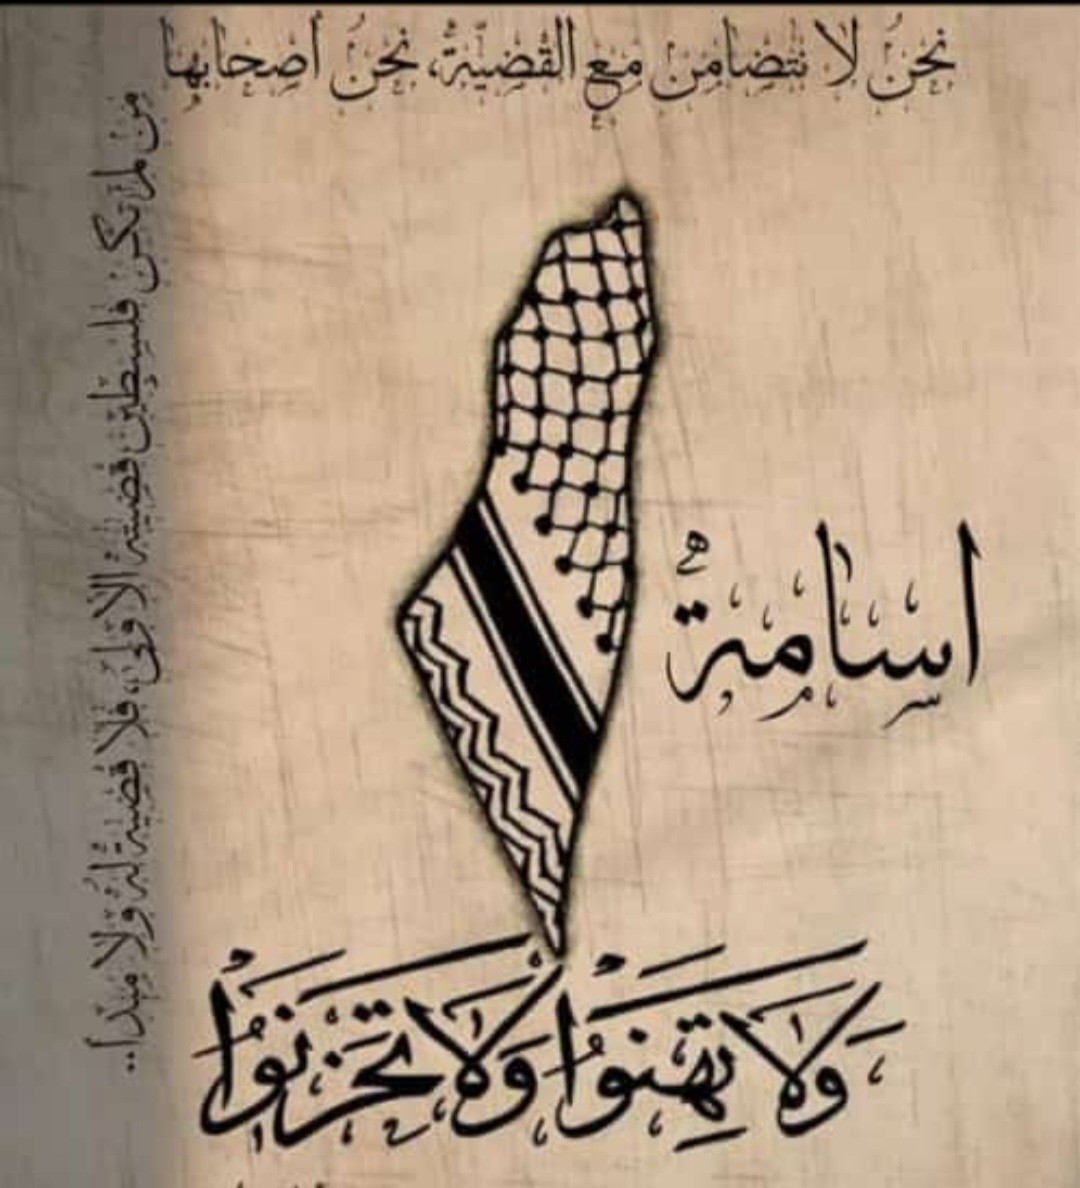 نحنُ لا نتضامن مع القضيّة، نحنُ أصحابها
من لم تكن فلسطين قضيته الاولى، فلا قضية له ولا مبدا..
اسامة
وَلا تَهِنُوا وَلا تَحْزَنُوا